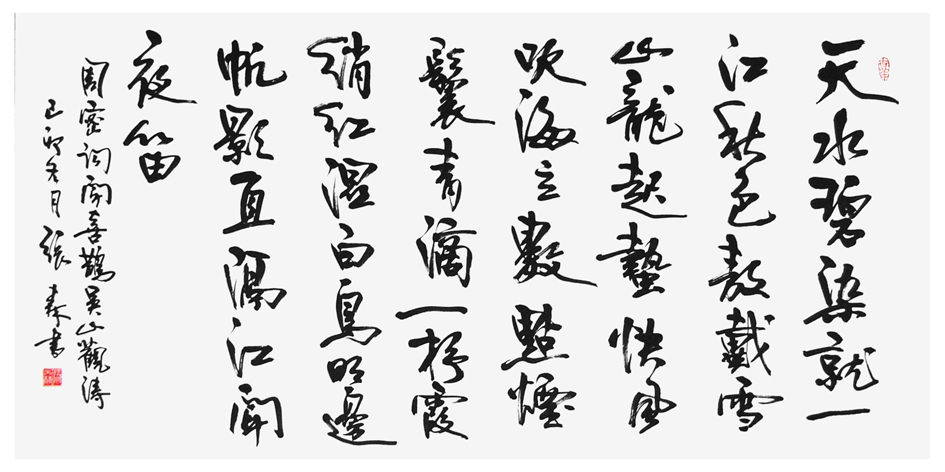 天水碧染就一
江秋色敖戴雪
山龍起蟄快風
吹海立數點煙
鬟青滴一杼霞
綃紅濕白鳥明邊
帆影直隔江聞
夜笛
周密詞聞喜鵲吳山觀濤
己卯冬月張書